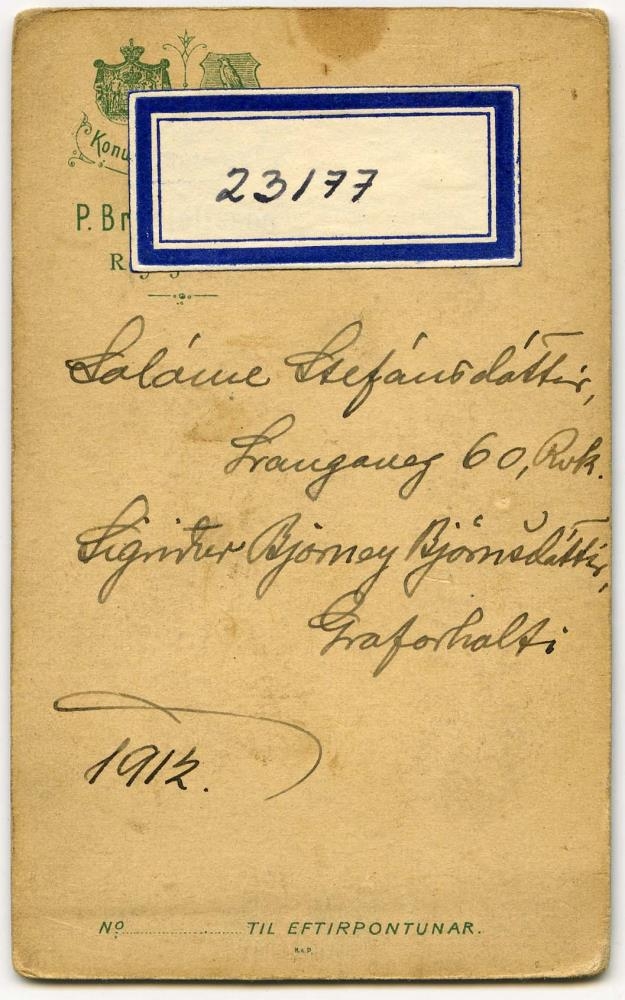 Konu
23177
P. Br
R
Salóme Stefánsdóttir,
60, Rvk.
Sigríður Björney Björnsdóttir,
Grafarholti
1912.
Nº TIL EFTIRPÖNTUNAR.